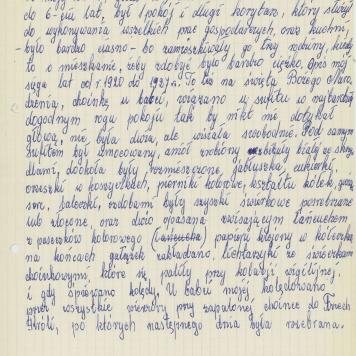 do 6-ciu lat, był 1 pokój i długi korytarz, który służył
do wykonywania wszelkich prac gospodarczych, oraz kuchni,
było bardzo ciasno - bo zamieszkiwały go trzy rodziny, kiedy
to o mieszkanie, żeby zdobyć było bardzo ciężko. Opis mój
sięga lat od r. 1920 do 1927 r. To też na święta Bożego Naro
dzenia, choinkę u babci, wiązano u sufitu w najbardziej
dogodnym rogu pokoju tak by nikt nie dotykał
głową, nie była duża, ale wisiała swobodnie. Pod samym
sufitem był umocowany, anioł zrobiony z bibuły białej ze skrzy
dłami, dookoła były rozmieszczone, jabłuszka, cukierki,
orzeszki w koszyczkach, pierniki kolorowe, kształtu kółek,
serc, laleczki, ozdobami były szyszki świerkowe posrebrzane
lub złocone, oraz dużo opasana zwisającym łańcuchem
z pasków kolorowego (łańcucha) papieru klejony w kółeczka
na końcach gałązek zakładano, lichtarzyki ze świeczkami
choinkowymi, które się paliły przy kolacji wigilijnej
i gdy śpiewano kolędy. U babci mojej kolędowano
przez wszystkie wieczory przy zapalonej choince do Trzech
Króli, po których następnego dnia była rozebrana.